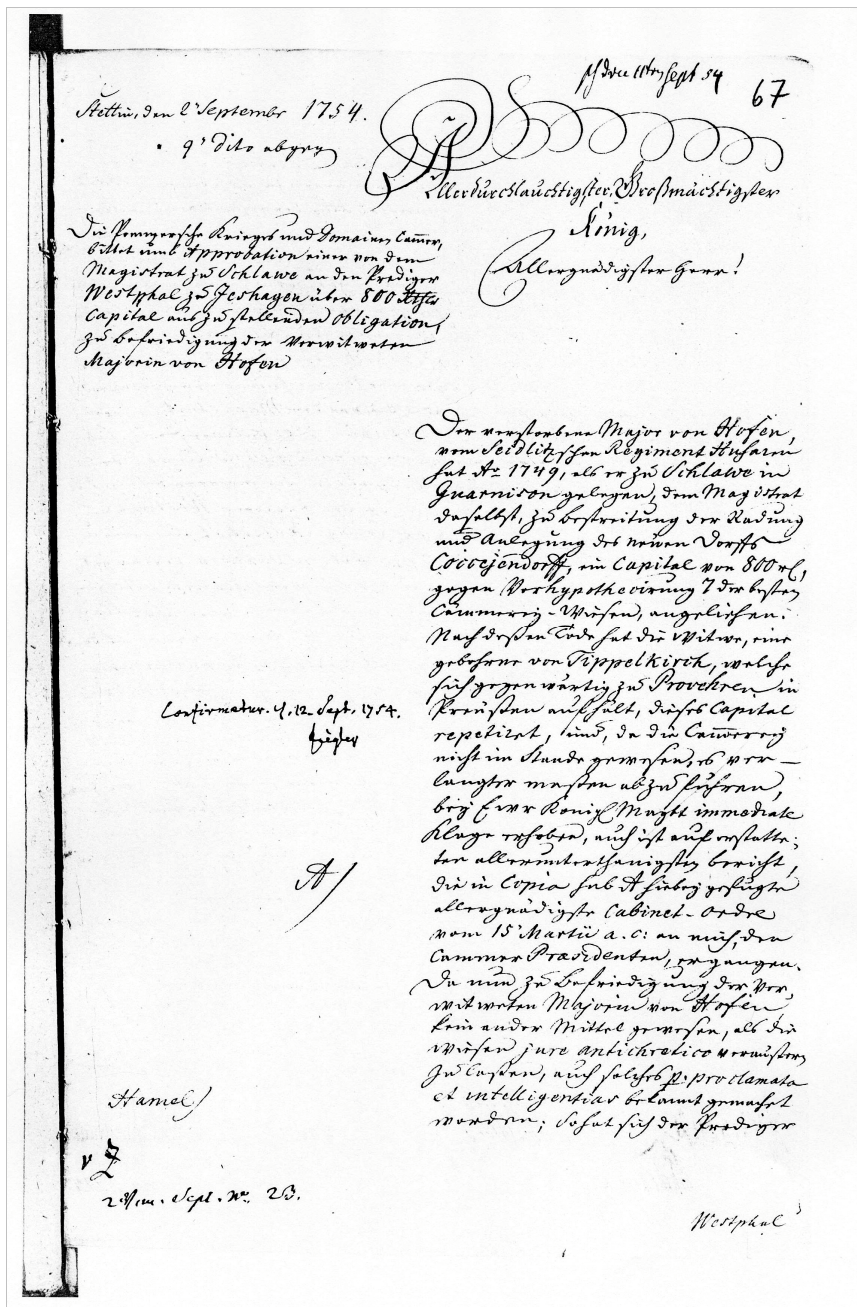 den 11ten Sept 54
67
Stettin, den 2t September 1754.
9t dito
Allerdurchlauchtigster, Großmächtigster
König,
Allergnädigster Herr!
Die Pommersche Krieges und Domainen Cammer,
bittet umb Approbation einer von dem
Magistrat zu Schlawe an den Prediger
Westphal zu Jeshagen über 800 Rthlr
Capital auszustellenden Obligation,
zu befriedigung der verwitweten
Majorin von Hofen
Der verstorbene Major von Hofen,
vom Seidlitzschen Regiment Husaren
hat Ao 1749, als er zu Schlawe in
Guarnison gelegen, dem Magistrat
daselbst, zu bestreitung der Radung
und Anlegung des neuen Dorffs
Coccejendorff, ein Capital von 800 rl,
gegen Verhypothecirung 7 der besten
Cämmerey-Wiesen, angeliehen.
Nach deßen Tode hat die Witwe, eine
gebohrne von Tippelkirch, welche
sich gegenwärtig zu Provehren in
Preußen aufhält, dieses Capital
repetiret, und, da die Cämmerey
nicht im Stande gewesen, es ver-
langter maßen abzuführen,
bey Ewr Königl Maytt immediate
Klage erhoben, auch ist auf erstatte-
ten allerunterthänigsten bericht,
die in Copia sub A hiebey gefügte
allergnädigste Cabinet-Ordre
vom 15t Martii a. c: an mich, den
Cammer Præsidenten, ergangen.
Da nun zu befriedigung der ver
witweten Majorin von Hofen
kein ander Mittel gewesen, als die
Wiesen jure antichretico veräußern
zu laßen, auch solches p. proclamata
et intelligentias bekannt gemachet
worden; So hat sich der Prediger
Westphal
Confirmatur. 12 Sept. 1754.
A/
Hamel
Sept. No. 23.